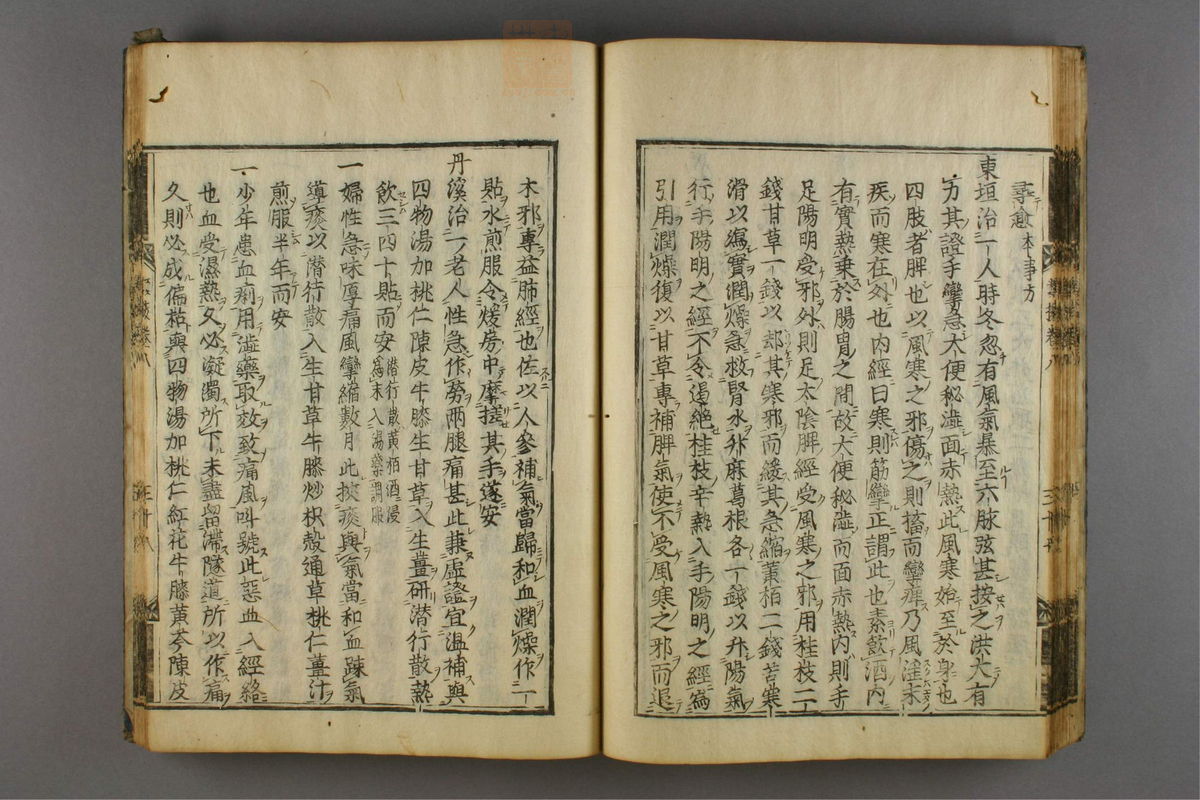 尋愈本事方
東垣治一人時冬忽有風氣暴至六脉弦甚按之洪大有
力其證手攣急大便秘澁面赤熱此風寒始至於身也
四肢者脾也以風寒之邪傷之則搐而攣痺乃風淫末
疾而寒在外也内經曰寒則筋攣正謂此也素飲酒内
有實熱乗於腸胃之間故大便秘澁而面赤熱内則手
足陽明受邪外則足太陰脾經受風寒之邪用桂枝二
錢甘草一錢以却其寒邪而緩其急縮黄栢二錢苦寒
滑以瀉實潤燥急救腎水升麻葛根各一錢以升陽氣
行手陽明之經不令遏絶桂枝辛熱入手陽明之經爲
引用潤燥復以甘草專補脾氣使不受風寒之邪而退
木邪專益肺經也佐以人參補氣當歸和血潤燥作一
貼水煎服令煖房中摩搓其手遂安
丹溪治一老人性急作勞兩腿痛甚此兼虛證宜温補與
四物湯加桃仁陳皮牛膝生甘草入生薑研潜行散熱
飲三四十貼而安潜行散黄栢酒浸
爲末入湯藥調服
一婦性急味厚痛風攣縮數月此挾痰與氣當和血踈氣
導痰以潜行散入生甘草牛膝炒枳殻通草桃仁薑汁
煎服半年而安
一少年患血痢用澁藥取效致痛風叫號此惡血入經絡
也血受濕熱久必凝濁所下未盡留滯隧道所以作痛
久則必成偏枯與四物湯加桃仁紅花牛膝黄芩陳皮